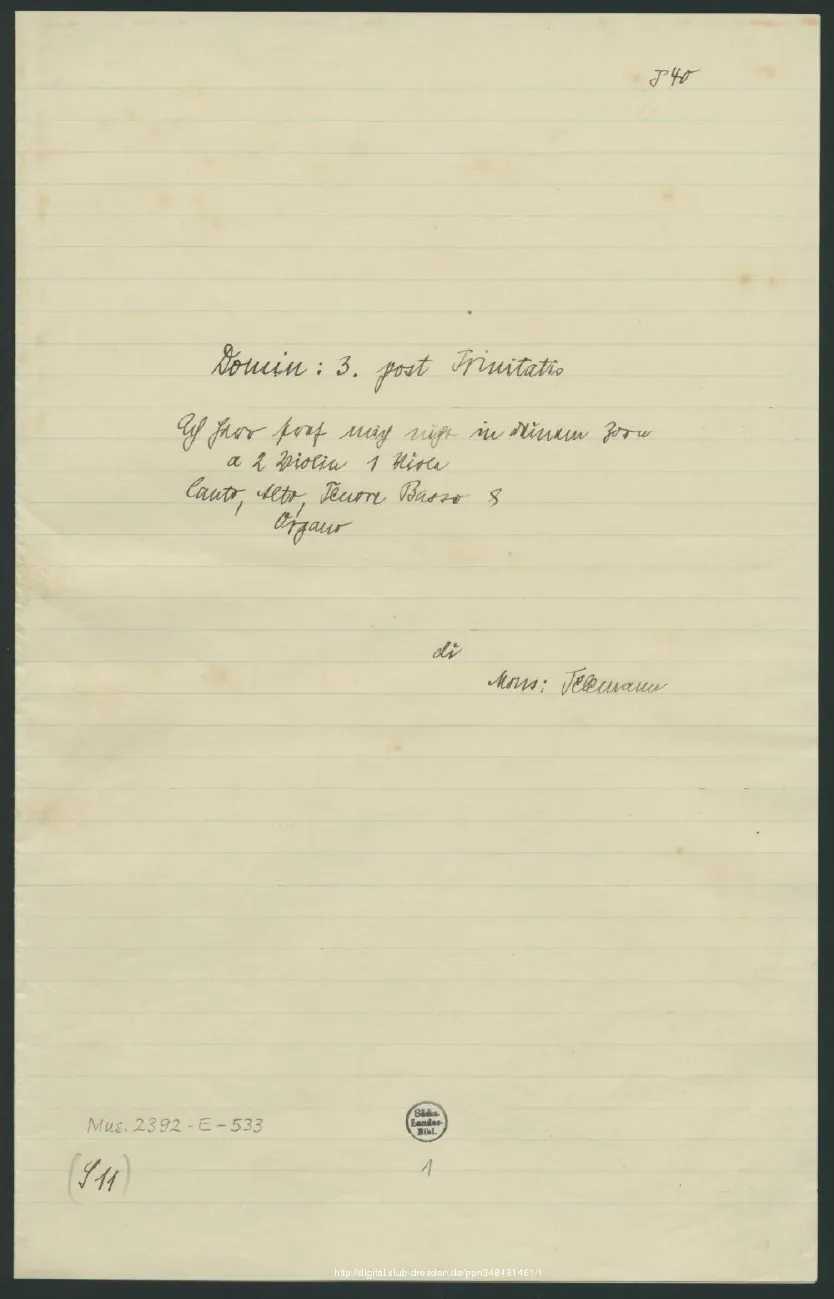 J 40
Domin: 3. post Trinitatis
Ach Herr straf mich nicht in deinem Zorn
a 2 Violin 1 Viola
Canto, Alto, Tenore Basso &
Organo
di
Mons: Telemann
Mus. 2392-E-533
Sächs.
Landes-
Bibl.
1
http://digital.slub-dresden.de/ppn348461461/1